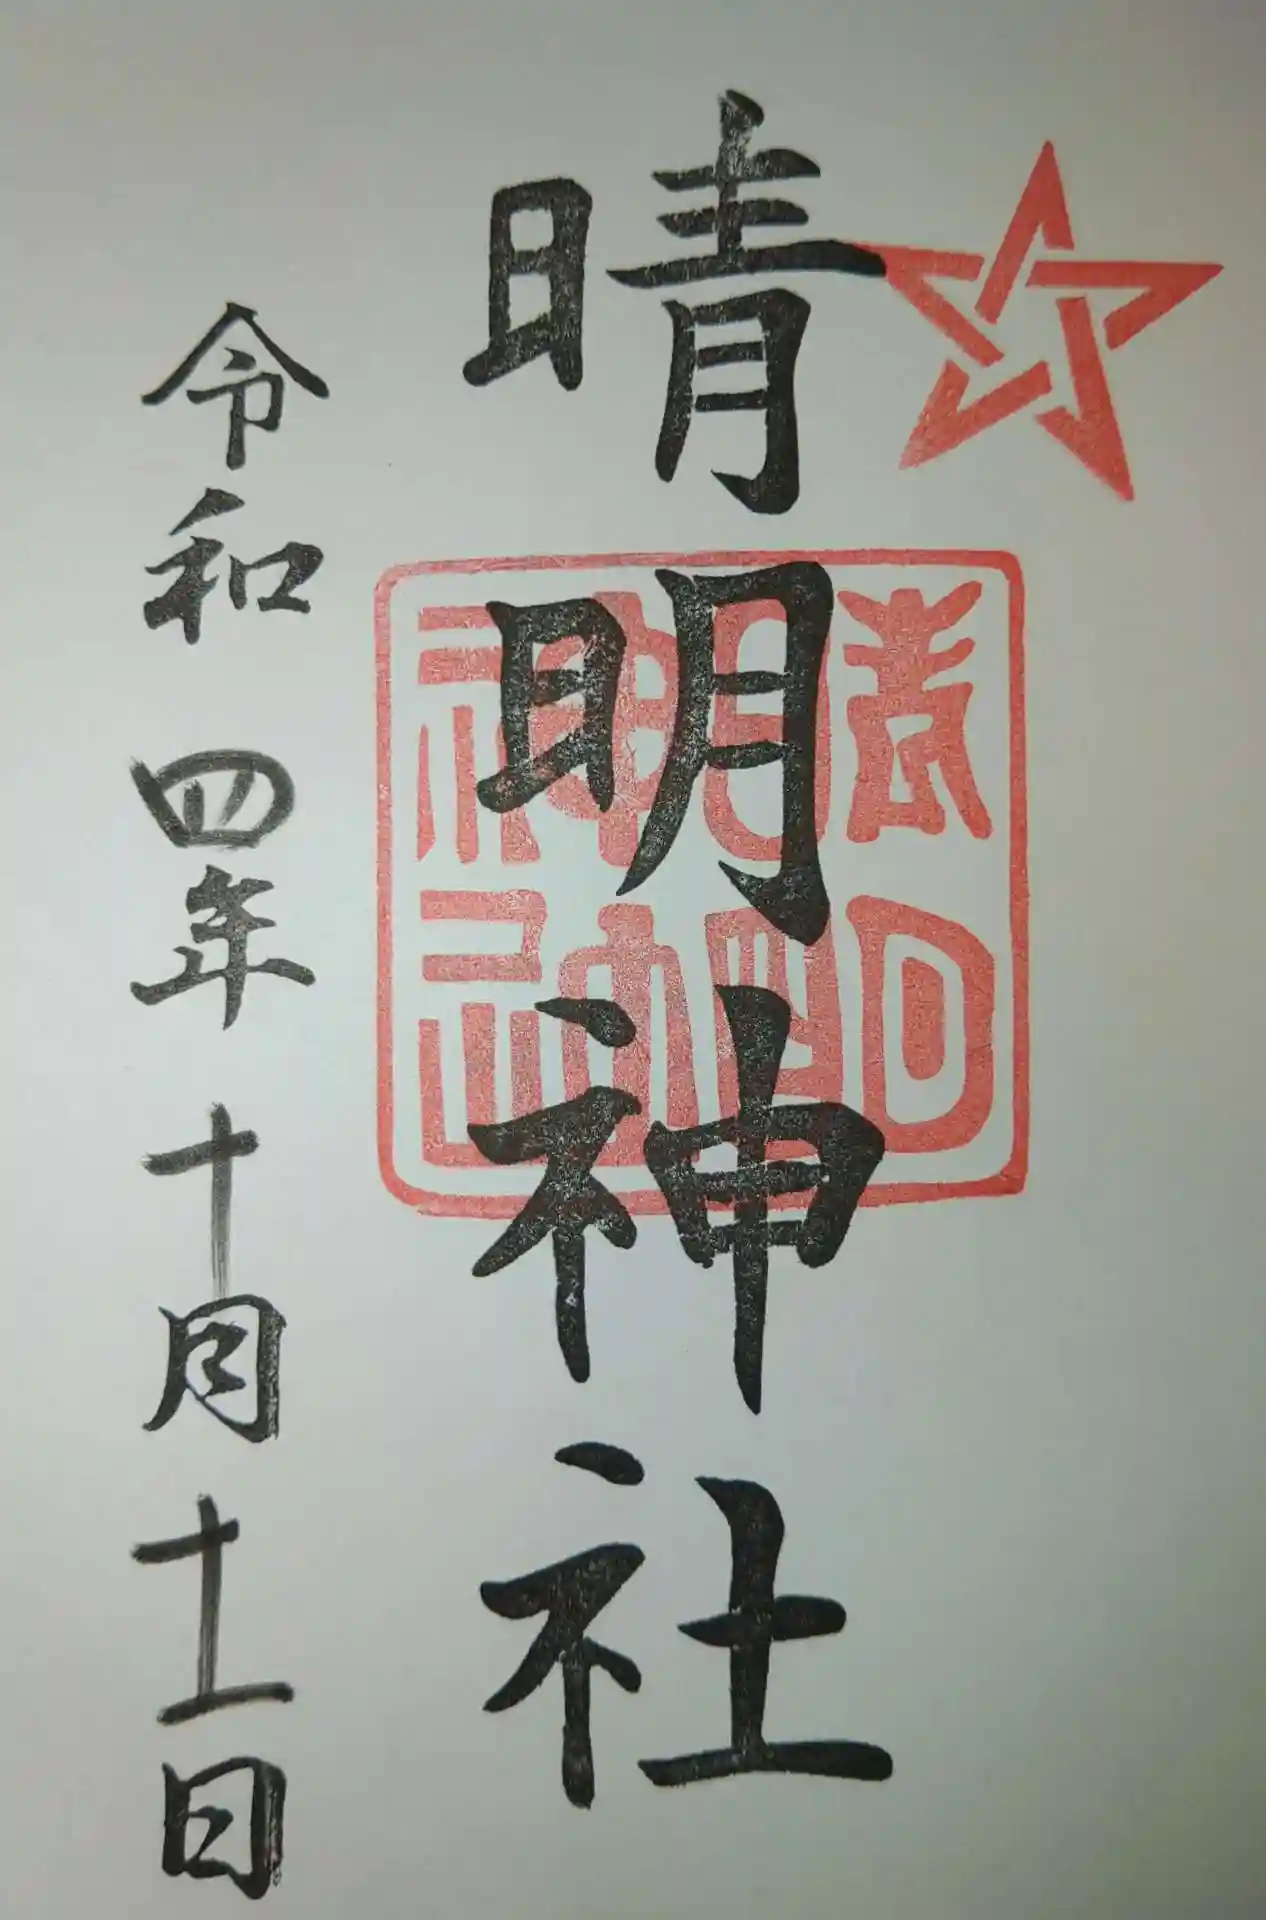 晴明神社
晴明神社
令和四年十月十一日